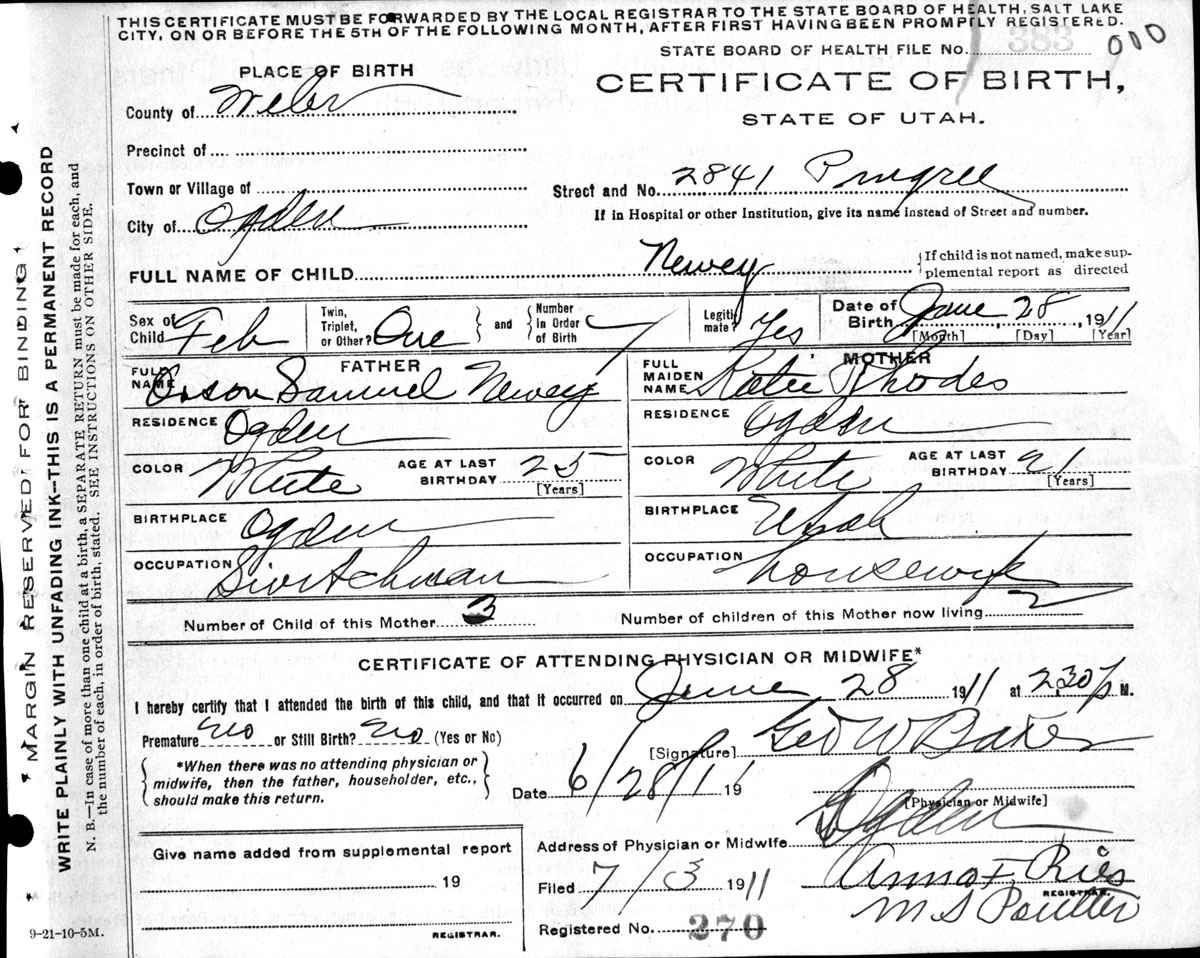 THIS CERTIFICATE MUST BE FORWARDED BY THE LOCAL REGISTRAR TO THE STATE BOARD OF HEALTH, SALT LAKE
CITY, ON OR BEFORE THE 5TH OF THE FOLLOWING MONTH, AFTER FIRST HAVING BEEN PROMPTLY REGISTERED.
STATE BOARD OF HEALTH FILE No. 383 000
PLACE OF BIRTH
CERTIFICATE OF BIRTH,
STATE OF UTAH.
County of Weber
Precinct of
Town or Village of
Street and No. 2841 Pingree
City of Ogden
If in Hospital or other Institution, give its name instead of Street and number.
FULL NAME OF CHILD Newey
{If child is not named, make sup-
plemental report as directed
Sex of Child
Twin, Triplet, or Other? One
and
Number in Order of Birth
Legiti mate? Yes
Date of Birth June, 28, 1911
[Month] [Day] [Year]
FATHER
FULL NAME Orson Samuel Newey
RESIDENCE Ogden
COLOR White
AGE AT LAST BIRTHDAY 25
[Years]
BIRTHPLACE Ogden
OCCUPATION Switchman
MOTHER
FULL MAIDEN NAME Katie Rhodes
RESIDENCE Ogden
COLOR White
AGE AT LAST BIRTHDAY 21
[Years]
BIRTHPLACE Utah
OCCUPATION housewife
Number of Child of this Mother 3
Number of children of this Mother now living 2
CERTIFICATE OF ATTENDING PHYSICIAN OR MIDWIFE*
I hereby certify that I attended the birth of this child, and that it occurred on June 28 1911 at 2.30 P M.
Premature No or Still Birth? No (Yes or No)
{*When there was no attending physician or
midwife, then the father, householder, etc.,
should make this return.}
[Signature] Geo W Baker
Date 6/28/11 19
[Physician or Midwife]
Address of Physician or Midwife Ogden
Give name added from supplemental report
19
REGISTRAR.
Filed 7/3 1911
Anna F. Ries
REGISTRAR.
M S Poulter
Registered No. 270
9-21-10-5M.
* MARGIN RESERVED FOR BINDING *
* WRITE PLAINLY WITH UNFADING INK—THIS IS A PERMANENT RECORD
N. B.—In case of more than one child at a birth, a SEPARATE RETURN must be made for each, and
the number of each, in order of birth, stated. SEE INSTRUCTIONS ON OTHER SIDE.